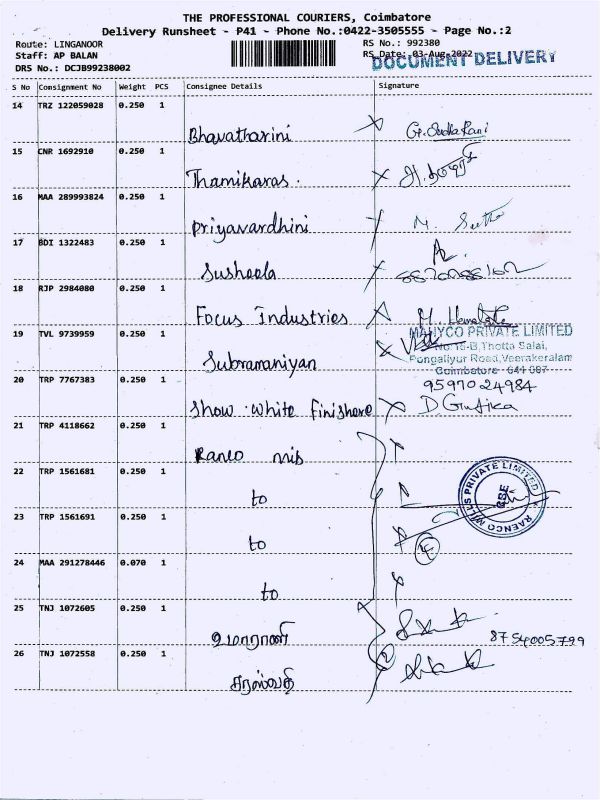 THE PROFESSIONAL COURIERS, Coimbatore
Delivery Runsheet - P41 - Phone No.:0422-3505555 - Page No.:2
Route: LINGANOOR RS No.: 992380
Staff: AP BALAN RS Date: 03-Aug-2022
DOCUMENT DELIVERY
DRS No.: DCJB99238002
S No Consignment No Weight PCS Consignee Details Signature
14 TRZ 122059028 0.250 1
Bhavatharini X G. Sudha Rani
15 CNR 1692910 0.250 1
Thamikaras. X
16 MAA 289993824 0.250 1
Priyavardhini M.
17 BDI 1322483 0.250 1
Susheela X
18 RJP 2984080 0.250 1
Focus Industries M. Hemalatha
19 TVL 9739959 0.250 1
MAHYCO PRIVATE LIMITED
No:15-B, Thotta Salai,
Subramaniyan X
Pongaliyur Road, Veerakeralam
Coimbatore - 641 007
20 TRP 7767383 0.250 1
9597024984
Show white Finishere X D.
21 TRP 4118662 0.250 1
Ranco mis
22 TRP 1561681 0.250 1
RAENCO MILLS PRIVATE LIMITED
CBE
to
23 TRP 1561691 0.250 1
to
24 MAA 291278446 0.070 1
to
25 TNJ 1072605 0.250 1
உமாராணி 8754005799
26 TNJ 1072558 0.250 1
சரஸ்வதி